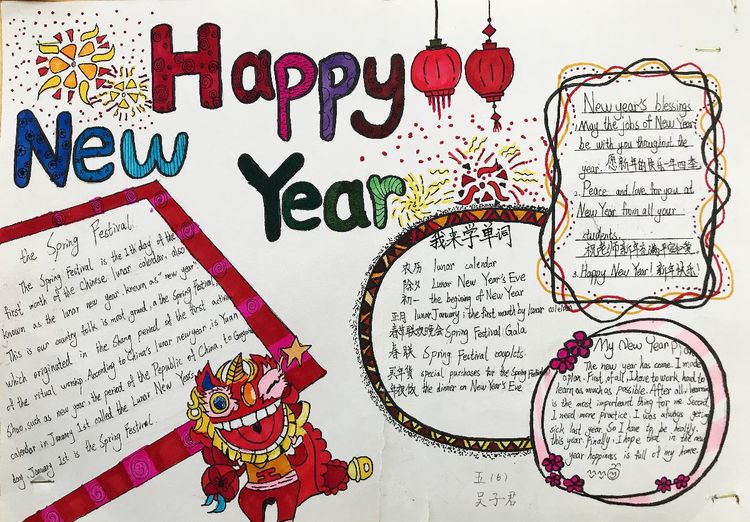 Happy
New
Year
the Spring Festival
The Spring Festival is the 1th day of the
first month of the Chinese lunar calendar, also
known as the lunar new year, known as "new year".
This is our country folk is most grand, a the Spring Festival,
which originated in the Shang period of the first action
of the ritual worship, According to China's lunar newyear is Yuan
Shuo, such as new year, the period of the Republic of China, to Gregorian
calendar in January 1st called the Lunar New Year's
day January 1st is the Spring Festival.
我来学单词
农历 lunar calendar
除夕 Lunar New Year's Eve
初一 the begining of New Year
正月 lunar January; the first month by lunar calendar
春节联欢晚会 Spring Festival Gala
春联 Spring Festival couplets
买年货 special purchases for the Spring Festival
年夜饭 the dinner on New Year's Eve
New year's blessings
May the jobs of New Year
be with you throughout the
year. 愿新年的快乐一年四季
Peace and love for you at
New Year from all your
students.
祝老师新年充满平安和爱.
Happy New Year! 新年快乐!
My New Year Plan
The new year has come. I made
a plan. First of all, I have to work hard to
learn as much as possible. After all, learn
is the most important thing for me. Second,
I need more practice. I was always getting
sick last year. So I have to be healthy
this year. Finally, I hope that in the new
year happiness is full of my home.
五(6)
吴子君